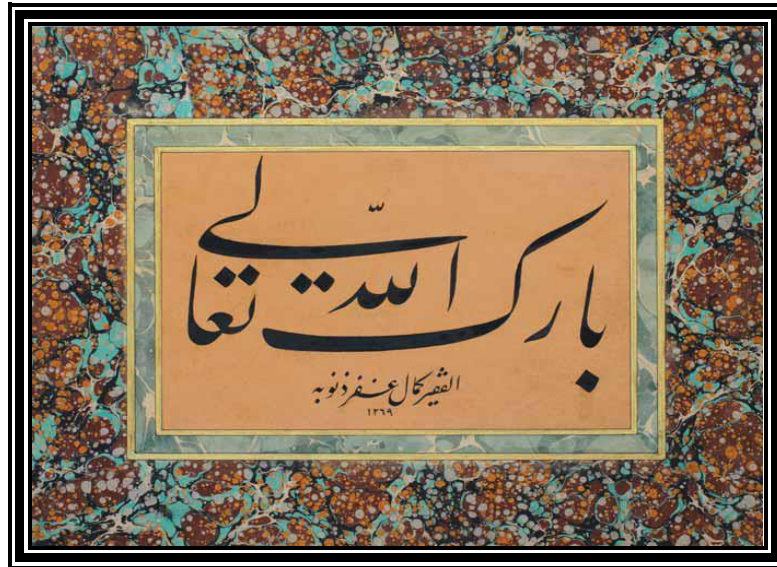 بارك الله تعالى
الفقير كمال غفر ذنوبه
١٣٦٩